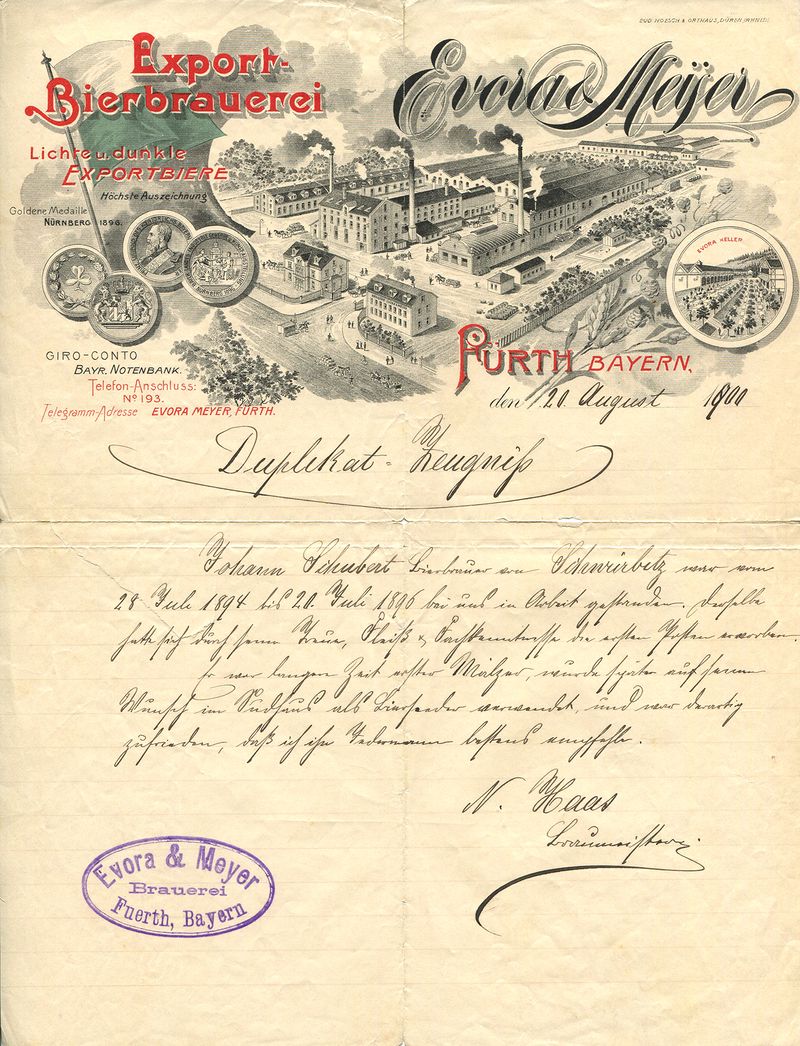 GUD. HOESCH & ORTHAUS, DÜREN
Export-
Bierbrauerei
Evora & Meyer
Lichte u. dunkle
EXPORTBIERE
Höchste Auszeichnung
Goldene Medaille
NÜRNBERG 1896.
EVORA KELLER
GIRO-CONTO
BAYR. NOTENBANK.
Telefon-Anschluss:
No 193.
Telegramm-Adresse EVORA MEYER, FÜRTH.
FÜRTH BAYERN,
den 20. August 1900
Duplikat-Zeugniß
Johann Schubert Bierbrauer von Schwürbitz war vom
28 Juli 1894 bis 20. Juli 1896 bei uns in Arbeit gestanden. Derselbe
hatte sich durch seine Treue, Fleiß & Fachkenntnisse die ersten Posten erworben.
Er war längere Zeit erster Mälzer, wurde später auf seinen
Wunsch im Sudhaus als Biersieder verwendet, und war derartig
zufrieden, daß ich ihn Jedermann bestens empfehle.
N. Haas
Braumeister.
Evora & Meyer
Brauerei
Fuerth, Bayern